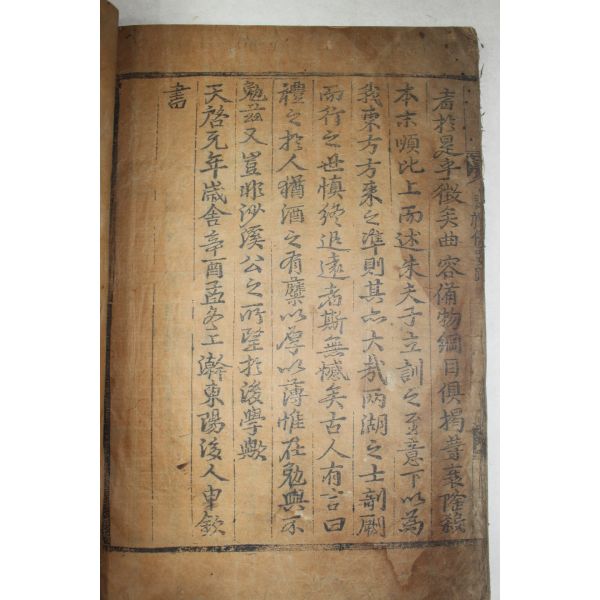 者於是乎徵矣曲容備物綱目俱揭昔襄隆殺
本末順比上而述朱夫子立訓之至意下以爲
我東方方來之準則其亦大哉兩湖之士剞劂
而行之世愼終追遠者斯無憾矣古人有言曰
禮之於人猶酒之有糵以厚以薄惟在勉與不
勉玆又豈非沙溪公之所望於後學歟
天啓元年歲舍辛酉孟冬上澣東陽後人申欽
書